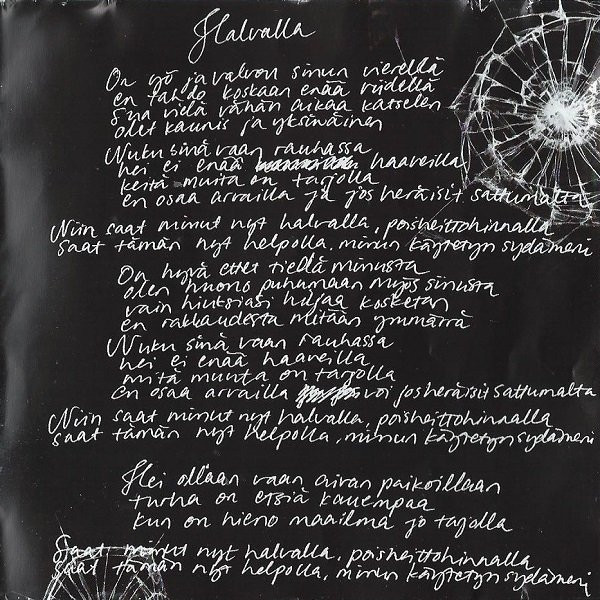 Halvalla
On yö ja valvon sinun vierellä
en tahdo koskaan enää riidellä
Sua vielä vähän aikaa katselen
olet kaunis ja yksinäinen
Nuku sinä vaan rauhassa
hei ei enää haaveilla
keitä muita on tarjolla
en osaa arvailla ja jos heräisit sattumalta
Niin saat minut nyt halvalla, poisheittohinnalla
saat tämän nyt helpolla, minun käytetyn sydämeni
On hyvä ettet tiedä minusta
olen huono puhumaan myös sinusta
vain hiuksiasi hiljaa kosketan
en rakkaudesta mitään ymmärrä
Nuku sinä vaan rauhassa
hei ei enää haaveilla
mitä muuta on tarjolla
en osaa arvailla voi jos heräisit sattumalta
Niin saat minut nyt halvalla, poisheittohinnalla
saat tämän nyt helpolla, minun käytetyn sydämeni
Hei ollaan vaan aivan paikoillaan
turha on etsiä kauempaa
kun on hieno maailma jo tarjolla
Saat minut nyt halvalla, poisheittohinnalla
saat tämän nyt helpolla, minun käytetyn sydämeni